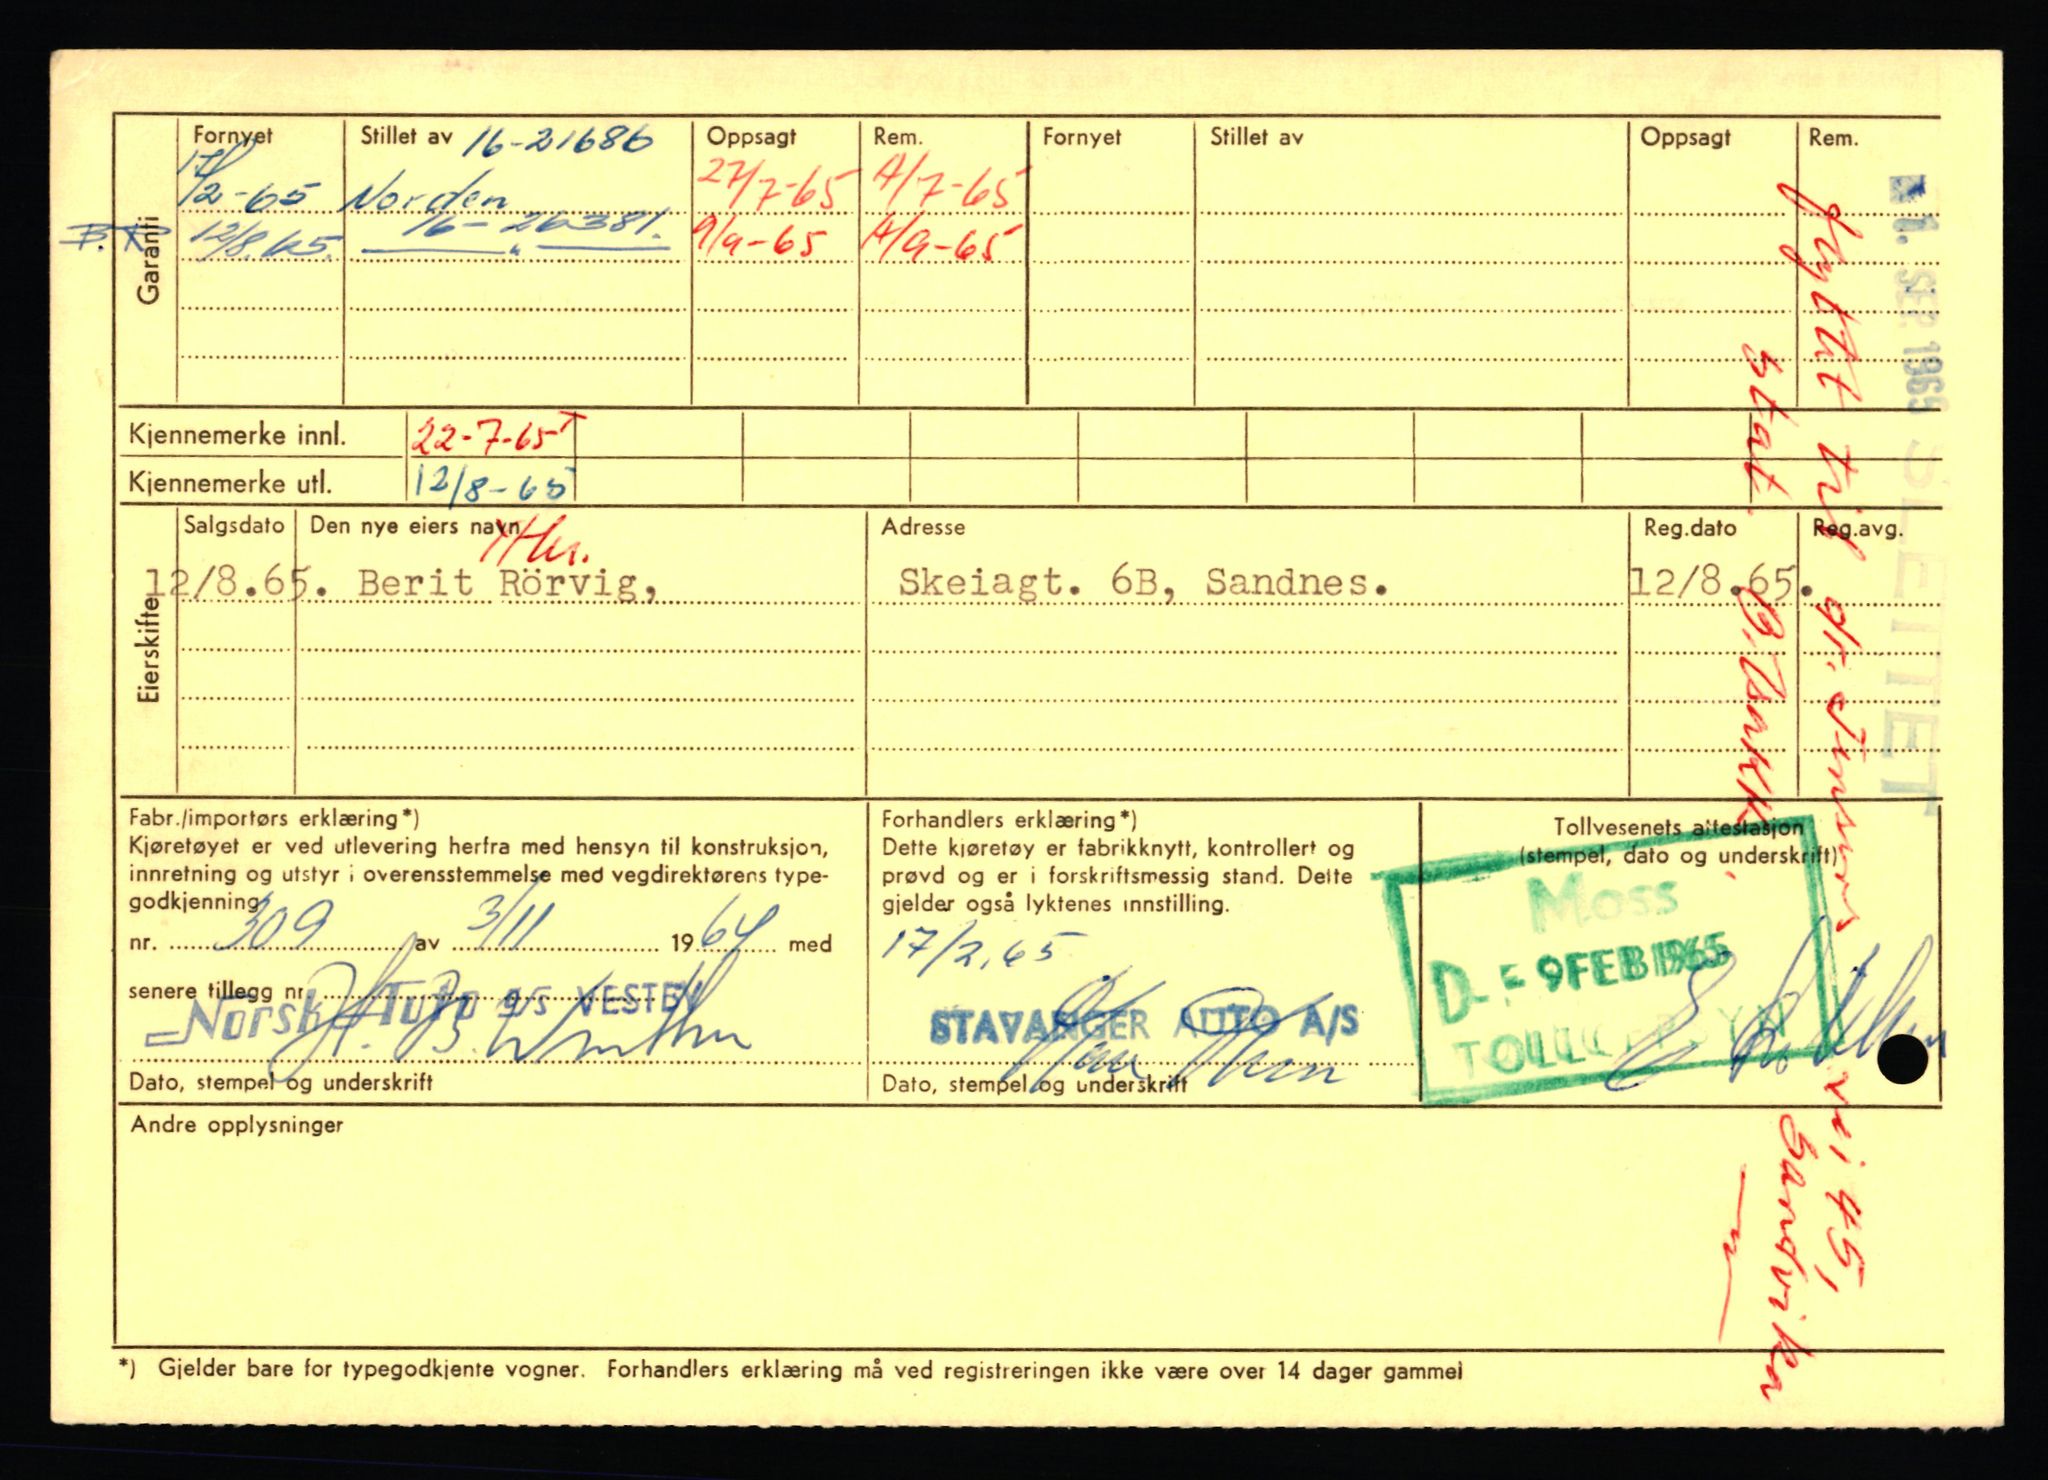 Garanti
Fornyet Stillet av 16-21686 Oppsagt Rem. Fornyet Stillet av Oppsagt Rem.
17/2-65 Norden 27/7-65 A/7-65
12/8.65. 16-26381. 9/9-65 A/9-65
Kjennemerke innl. 22-7-65
Kjennemerke utl. 12/8-65
Eierskifte
Salgsdato Den nye eiers navn Adresse Reg.dato Reg.avg.
12/8.65. Berit Rörvig, Skeiagt. 6B, Sandnes. 12/8.65.
Fabr./importørs erklæring*)
Kjøretøyet er ved utlevering herfra med hensyn til konstruksjon,
innretning og utstyr i overensstemmelse med vegdirektørens type-
godkjenning
nr. 309 av 3/11 1964 med
senere tillegg nr.
Norsk Auto A/S VESTBY
Dato, stempel og underskrift
Forhandlers erklæring*)
Dette kjøretøy er fabrikknytt, kontrollert og
prøvd og er i forskriftsmessig stand. Dette
gjelder også lyktenes innstilling.
17/2.65
STAVANGER AUTO A/S
Dato, stempel og underskrift
Tollvesenets attestasjon
(stempel, dato og underskrift)
Moss
9 FEB 1965
Andre opplysninger
*) Gjelder bare for typegodkjente vogner. Forhandlers erklæring må ved registreringen ikke være over 14 dager gammel
Flyttet til gr. vei 45,
Sandvika
SEP. 1965 SLETTET